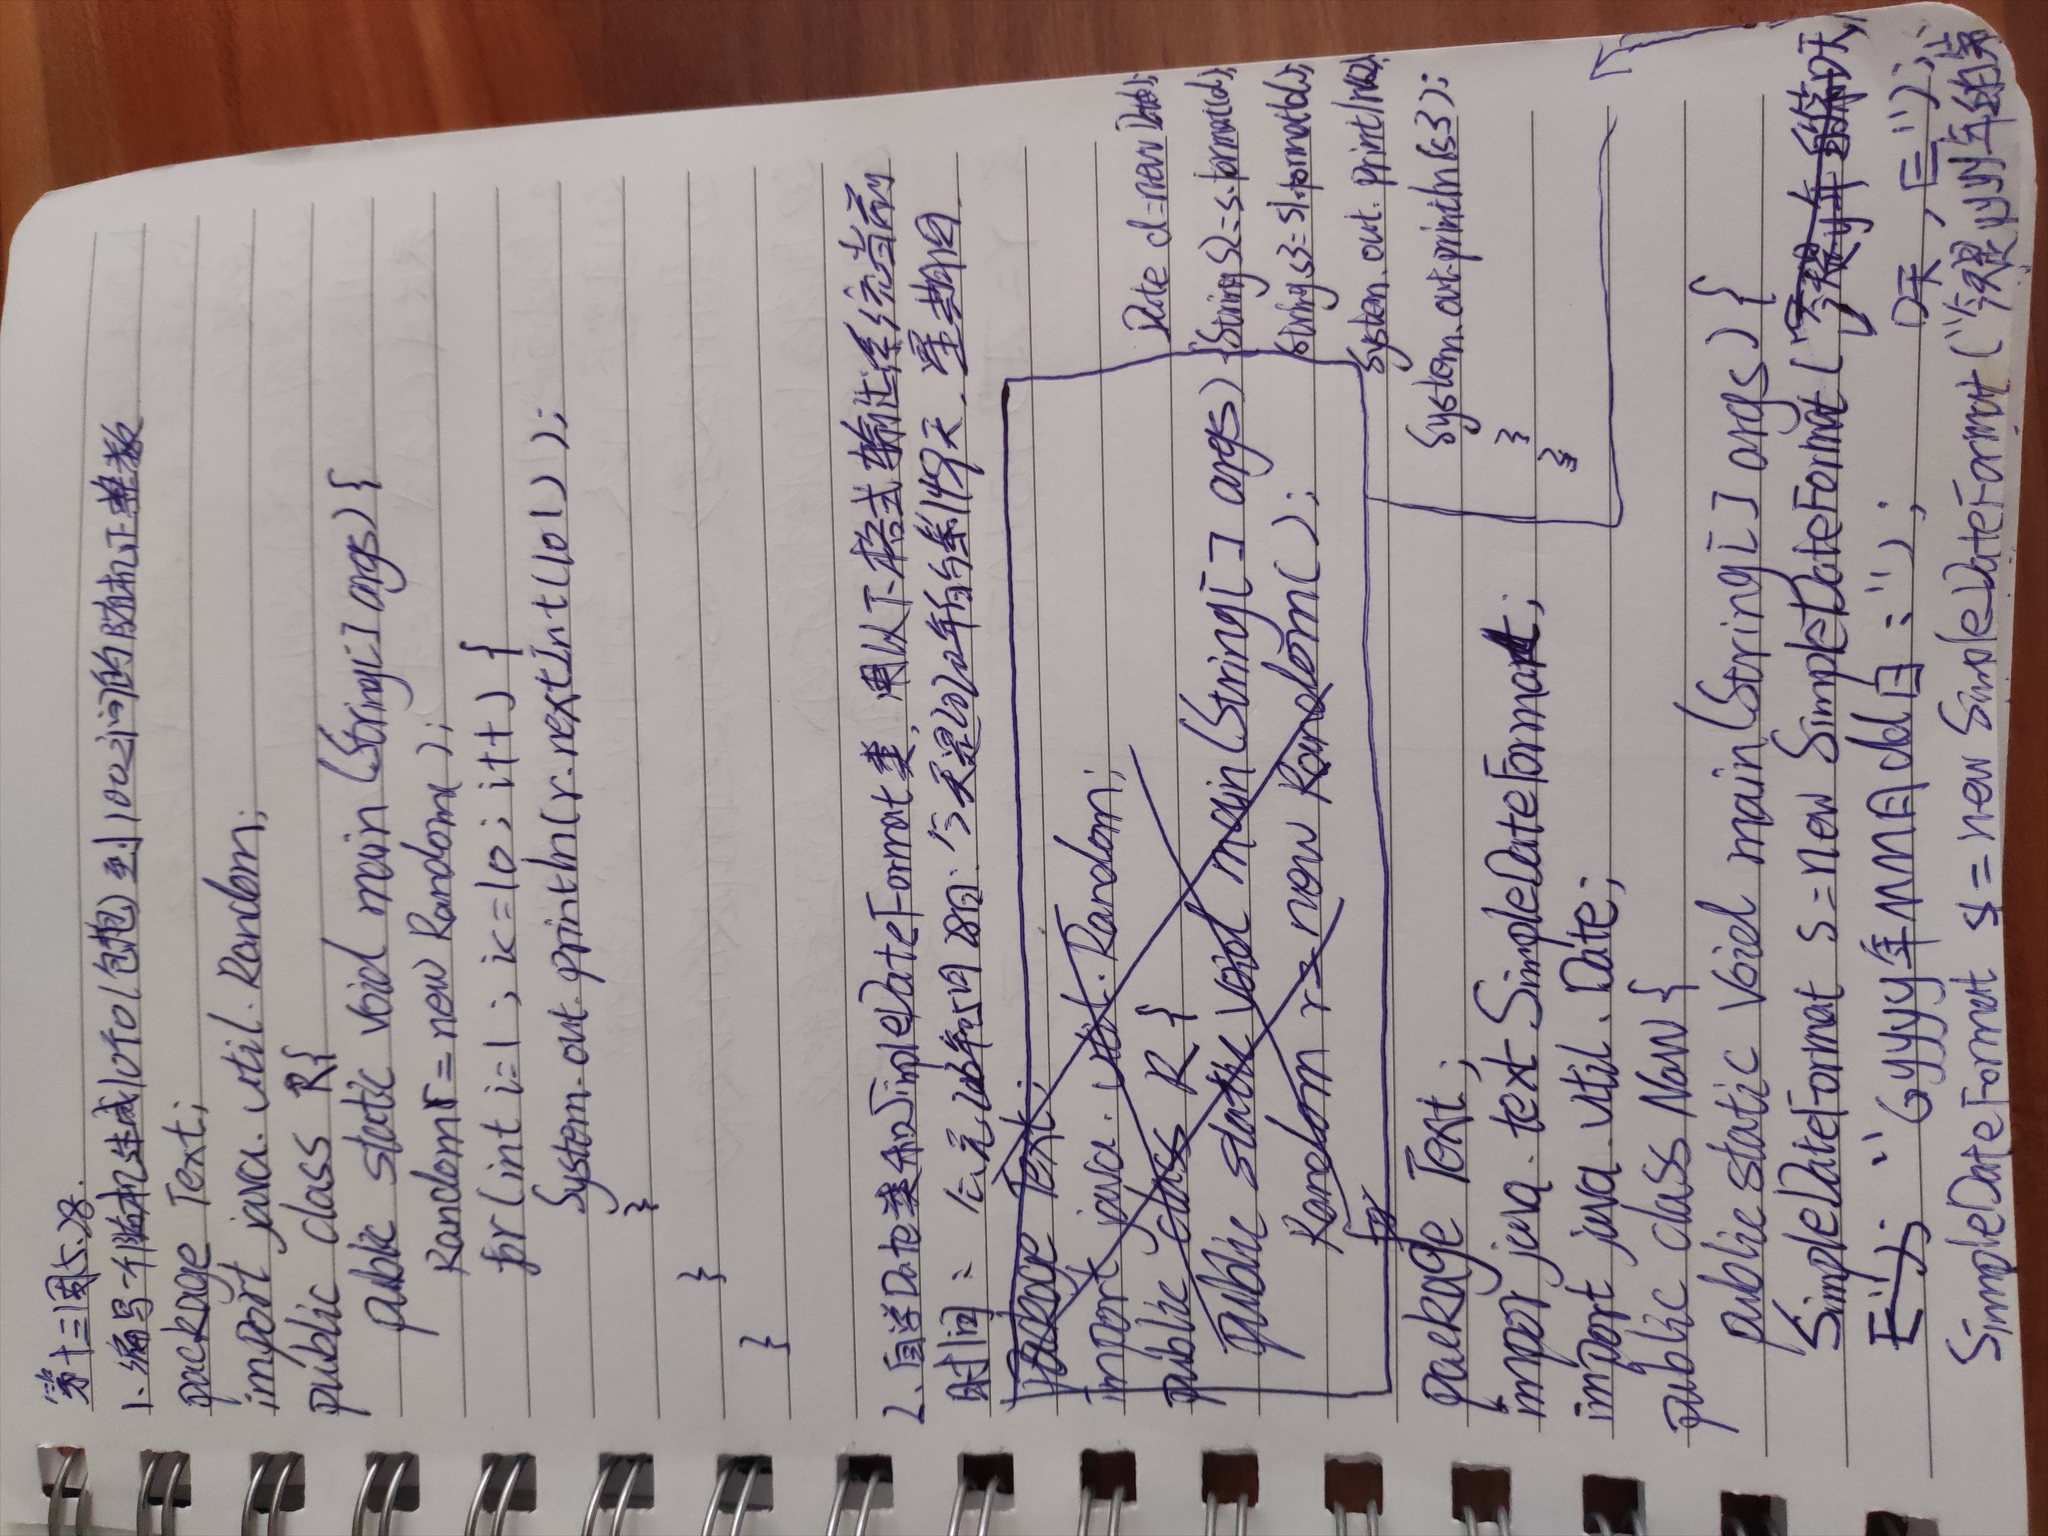 第十三周5.28.
1、编写一个随机生成10个0(包括)到100之间的随机正整数
package Text;
import java.util.Random;
public class R{
public static void main(String[] args){
Random r=new Random();
for(int i=1;i<=10;i++){
System.out.println(r.nextInt(101));
}
}
}
2.自学Date类和SimpleDateFormat类,用以下格式输出系统当前
时间: 公元2022年5月28日:今天是2022年的第149天,星期四
package Text;
import java.util.Random;
public class R{
public static void main(String[] args){
Random r=new Random();
for
package Text;
import java.text.SimpleDateFormat;
import java.util.Date;
public class Now{
public static void main(String[] args){
SimpleDateFormat s=new SimpleDateFormat(
"Gyyyy年MM月dd日:");
SimpleDateFormat s1=new SimpleDateFormat("今天是yyyy年的第
D天,E");
Date d=new Date();
String s2=s.format(d);
String s3=s1.format(d);
System.out.println(s2);
System.out.println(s3);
}
}